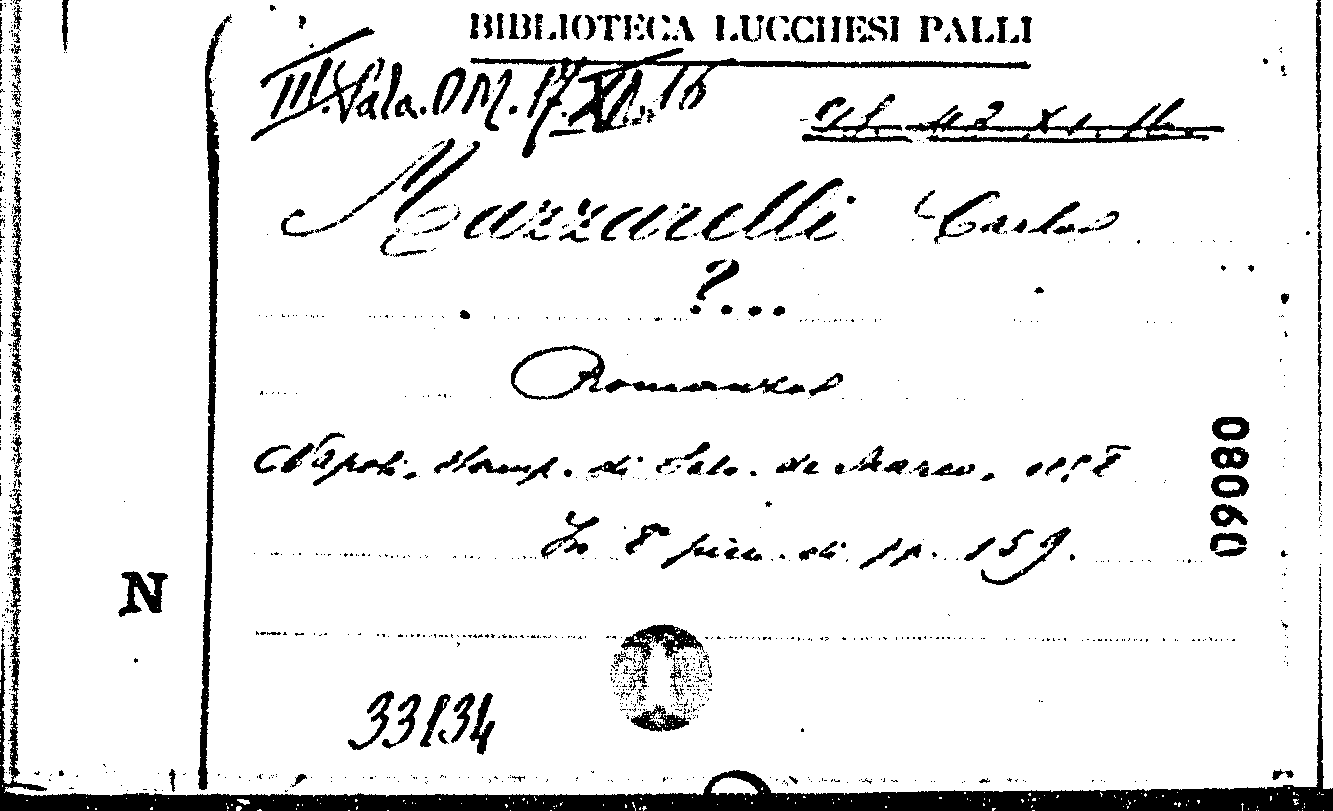 BIBLIOTECA LUCCHESI PALLI
III. Sala. DM. 17. XI. 16
XI. 16.
Mazzarelli Carlo
?...
Romanzo
Napoli, Stamp. di Salv. de Marco,
In 8° picc. di pp. 159.
08060
N
33134